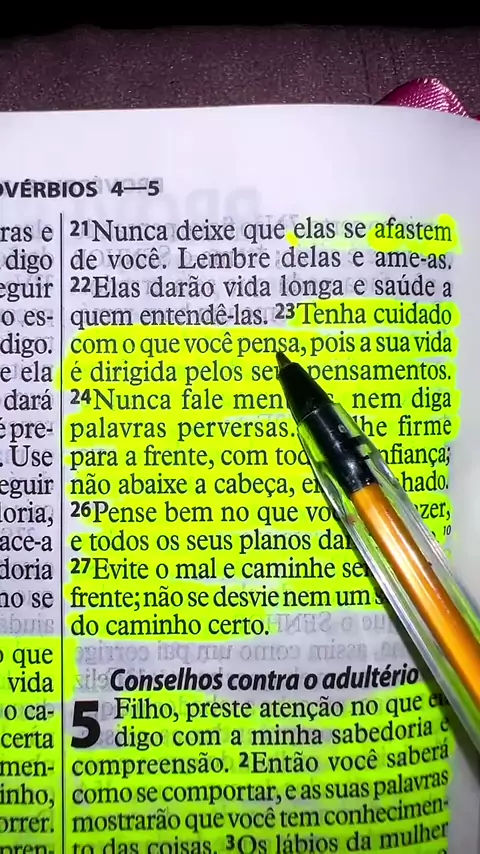 OVÉRBIOS 4—5
ras e
digo
eguir
o es-
digo.
e ela
dará
é pre-
. Use
eguir
loria,
ace-a
doria
no se
o que
vida
o ca-
certa
men-
inho,
orrer.
pren-
21Nunca deixe que elas se afastem
de você. Lembre delas e ame-as.
22Elas darão vida longa e saúde a
quem entendê-las. 23Tenha cuidado
com o que você pensa, pois a sua vida
é dirigida pelos seu pensamentos.
24Nunca fale men nem diga
palavras perversas. lhe firme
para a frente, com tod nfiança;
não abaixe a cabeça, en hado.
26Pense bem no que vo zer,
e todos os seus planos da 10
27Evite o mal e caminhe se
frente; não se desvie nem um s
do caminho certo.
Conselhos contra o adultério
5 Filho, preste atenção no que eu
digo com a minha sabedoria e
compreensão. 2Então você saberá
como se comportar, e as suas palavras
mostrarão que você tem conhecimen-
to das coisas. 3Os lábios da mulher